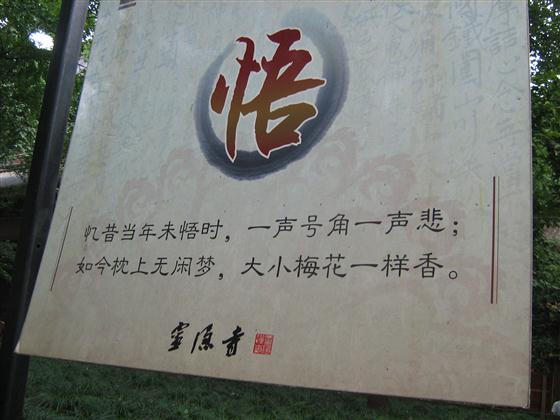 悟
忆昔当年未悟时，一声号角一声悲；
如今枕上无闲梦，大小梅花一样香。